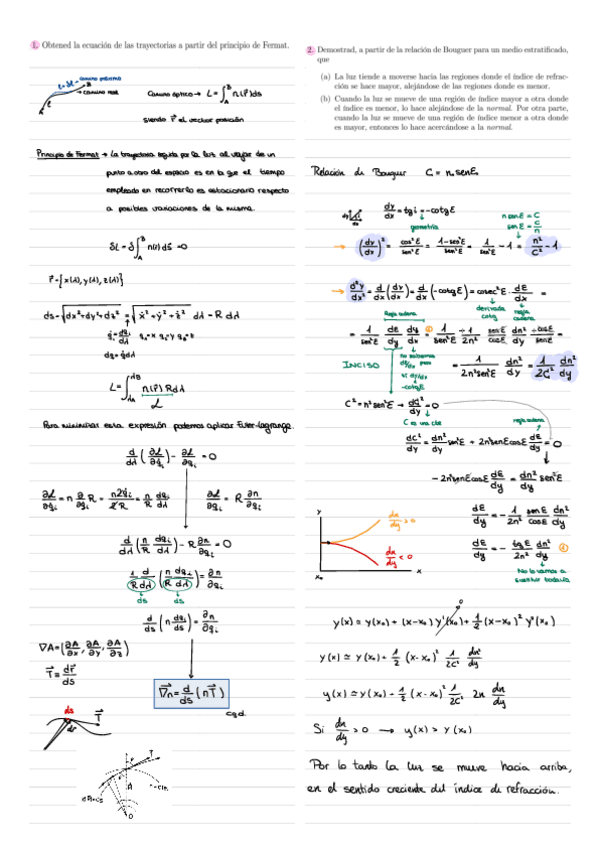 1. Obtened la ecuación de las trayectorias a partir del principio de Fermat.
camino próximo
B
→ camino real
A
Camino óptico → L = ∫_A^B n(r⃗)ds
siendo r⃗ el vector posición
Principio de Fermat → La trayectoria seguida por la luz al viajar de un
punto a otro del espacio es en la que el tiempo
empleado en recorrerlo es estacionario respecto
a posibles variaciones de la misma.
δL = δ∫_A^B n(r) ds = 0
r⃗ = {x(λ), y(λ), z(λ)}
ds = √(dx² + dy² + dz²) = √(ẋ² + ẏ² + ż²) dλ = R dλ
L = ∫_{λA}^{λB} n(r⃗) R dλ
Para minimizar esta expresión podemos aplicar Euler-Lagrange.
d/dλ (∂L/∂q̇ᵢ) - ∂L/∂qᵢ = 0
∂L/∂qᵢ = R ∂n/∂qᵢ
d/dλ (n/R dqᵢ/dλ) - R ∂n/∂qᵢ = 0
1/R d/dλ (n/R dqᵢ/dλ) = ∂n/∂qᵢ
ds ds
d/ds (n dqᵢ/ds) = ∂n/∂qᵢ
∇A = (∂A/∂x, ∂A/∂y, ∂A/∂z)
T⃗ = dr⃗/ds
∇⃗n = d/ds (nT⃗)
cqd.
ds
T⃗
dr⃗
2. Demostrad, a partir de la relación de Bouguer para un medio estratificado,
que
(a) La luz tiende a moverse hacia las regiones donde el índice de refrac-
ción se hace mayor, alejándose de las regiones donde es menor.
(b) Cuando la luz se mueve de una región de índice mayor a otra donde
el índice es menor, lo hace alejándose a la normal. Por otra parte,
cuando la luz se mueve de una región de índice menor a otra donde
es mayor, entonces lo hace acercándose a la normal.
Relación de Bouguer C = n senE
dy/dx = tg i = -cotgE
geometría
n senE = C
senE = C/n
→ (dy/dx)² = cos²E/sen²E = (1-sen²E)/sen²E = 1/sen²E - 1 = n²/C² - 1
→ d²y/dx² = d/dx (dy/dx) = d/dx (-cotgE) = cosec²E · dE/dx =
Regla cadena
derivada cotg
regla cadena
= 1/(2n²sen²E) dn²/dy = 1/2C² dn²/dy
INCISO
C² = n²sen²E → dC²/dy = 0
C es una cte
regla cadena
dC²/dy = dn²/dy sen²E + 2n²senEcosE dE/dy = 0
-2n²senEcosE dE/dy = dn²/dy sen²E
dE/dy = - 1/2n² senE/cosE dn²/dy
dE/dy = - tgE/2n² dn²/dy ①
y
dn/dy > 0
dn/dy < 0
x₀
x
y(x) ≈ y(x₀) + (x-x₀) y'(x₀) + 1/2 (x-x₀)² y''(x₀)
0
y(x) ≈ y(x₀) + 1/2 (x-x₀)² 1/2C² dn²/dy
y(x) ≈ y(x₀) + 1/2 (x-x₀)² 1/2C² 2n dn/dy
Si dn/dy > 0 → y(x) > y(x₀)
Por lo tanto la luz se mueve hacia arriba,
en el sentido creciente del índice de refracción.